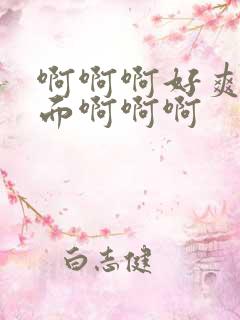 啊啊啊好爽
而啊啊啊
白志健